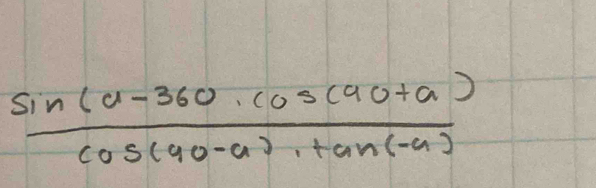 sin(a-360 . cos(90+a)
cos(90-a) . tan(-a)